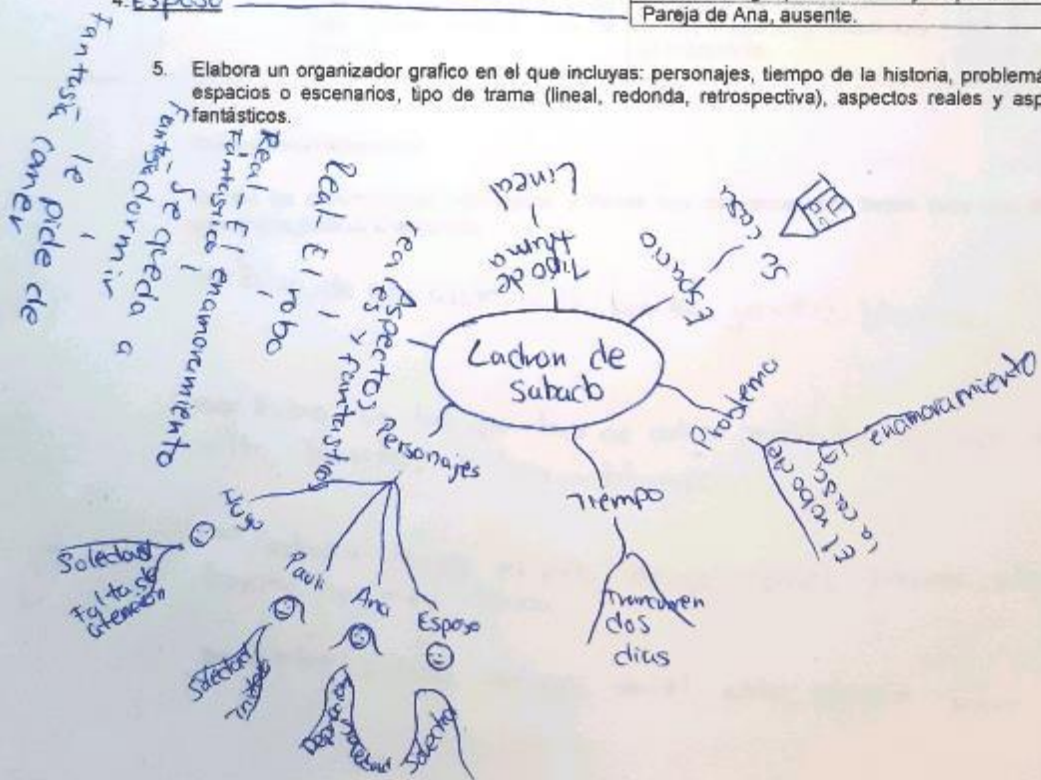 4. Esposo
Pareja de Ana, ausente.
5. Elabora un organizador grafico en el que incluyas: personajes, tiempo de la historia, problemá
espacios o escenarios, tipo de trama (lineal, redonda, retrospectiva), aspectos reales y asp
fantásticos.
Ladron de
Sabado
Tipo de
trama
Lineal
Espacio
Su casa
Problema
El robo de
la casa
enamoramiento
Tiempo
Trancurren
dos
dias
Personajes
Hugo
Soledad
Falta de
atencion
Pauli
Soledad
Ana
Depresion
Soledad
Esposo
Aspectos
reales y fantasticos
Real - El robo
Real - El
Fantastico enamoramiento
Fantasia
Se queda a
dormir
Fantasia le pide de
comer